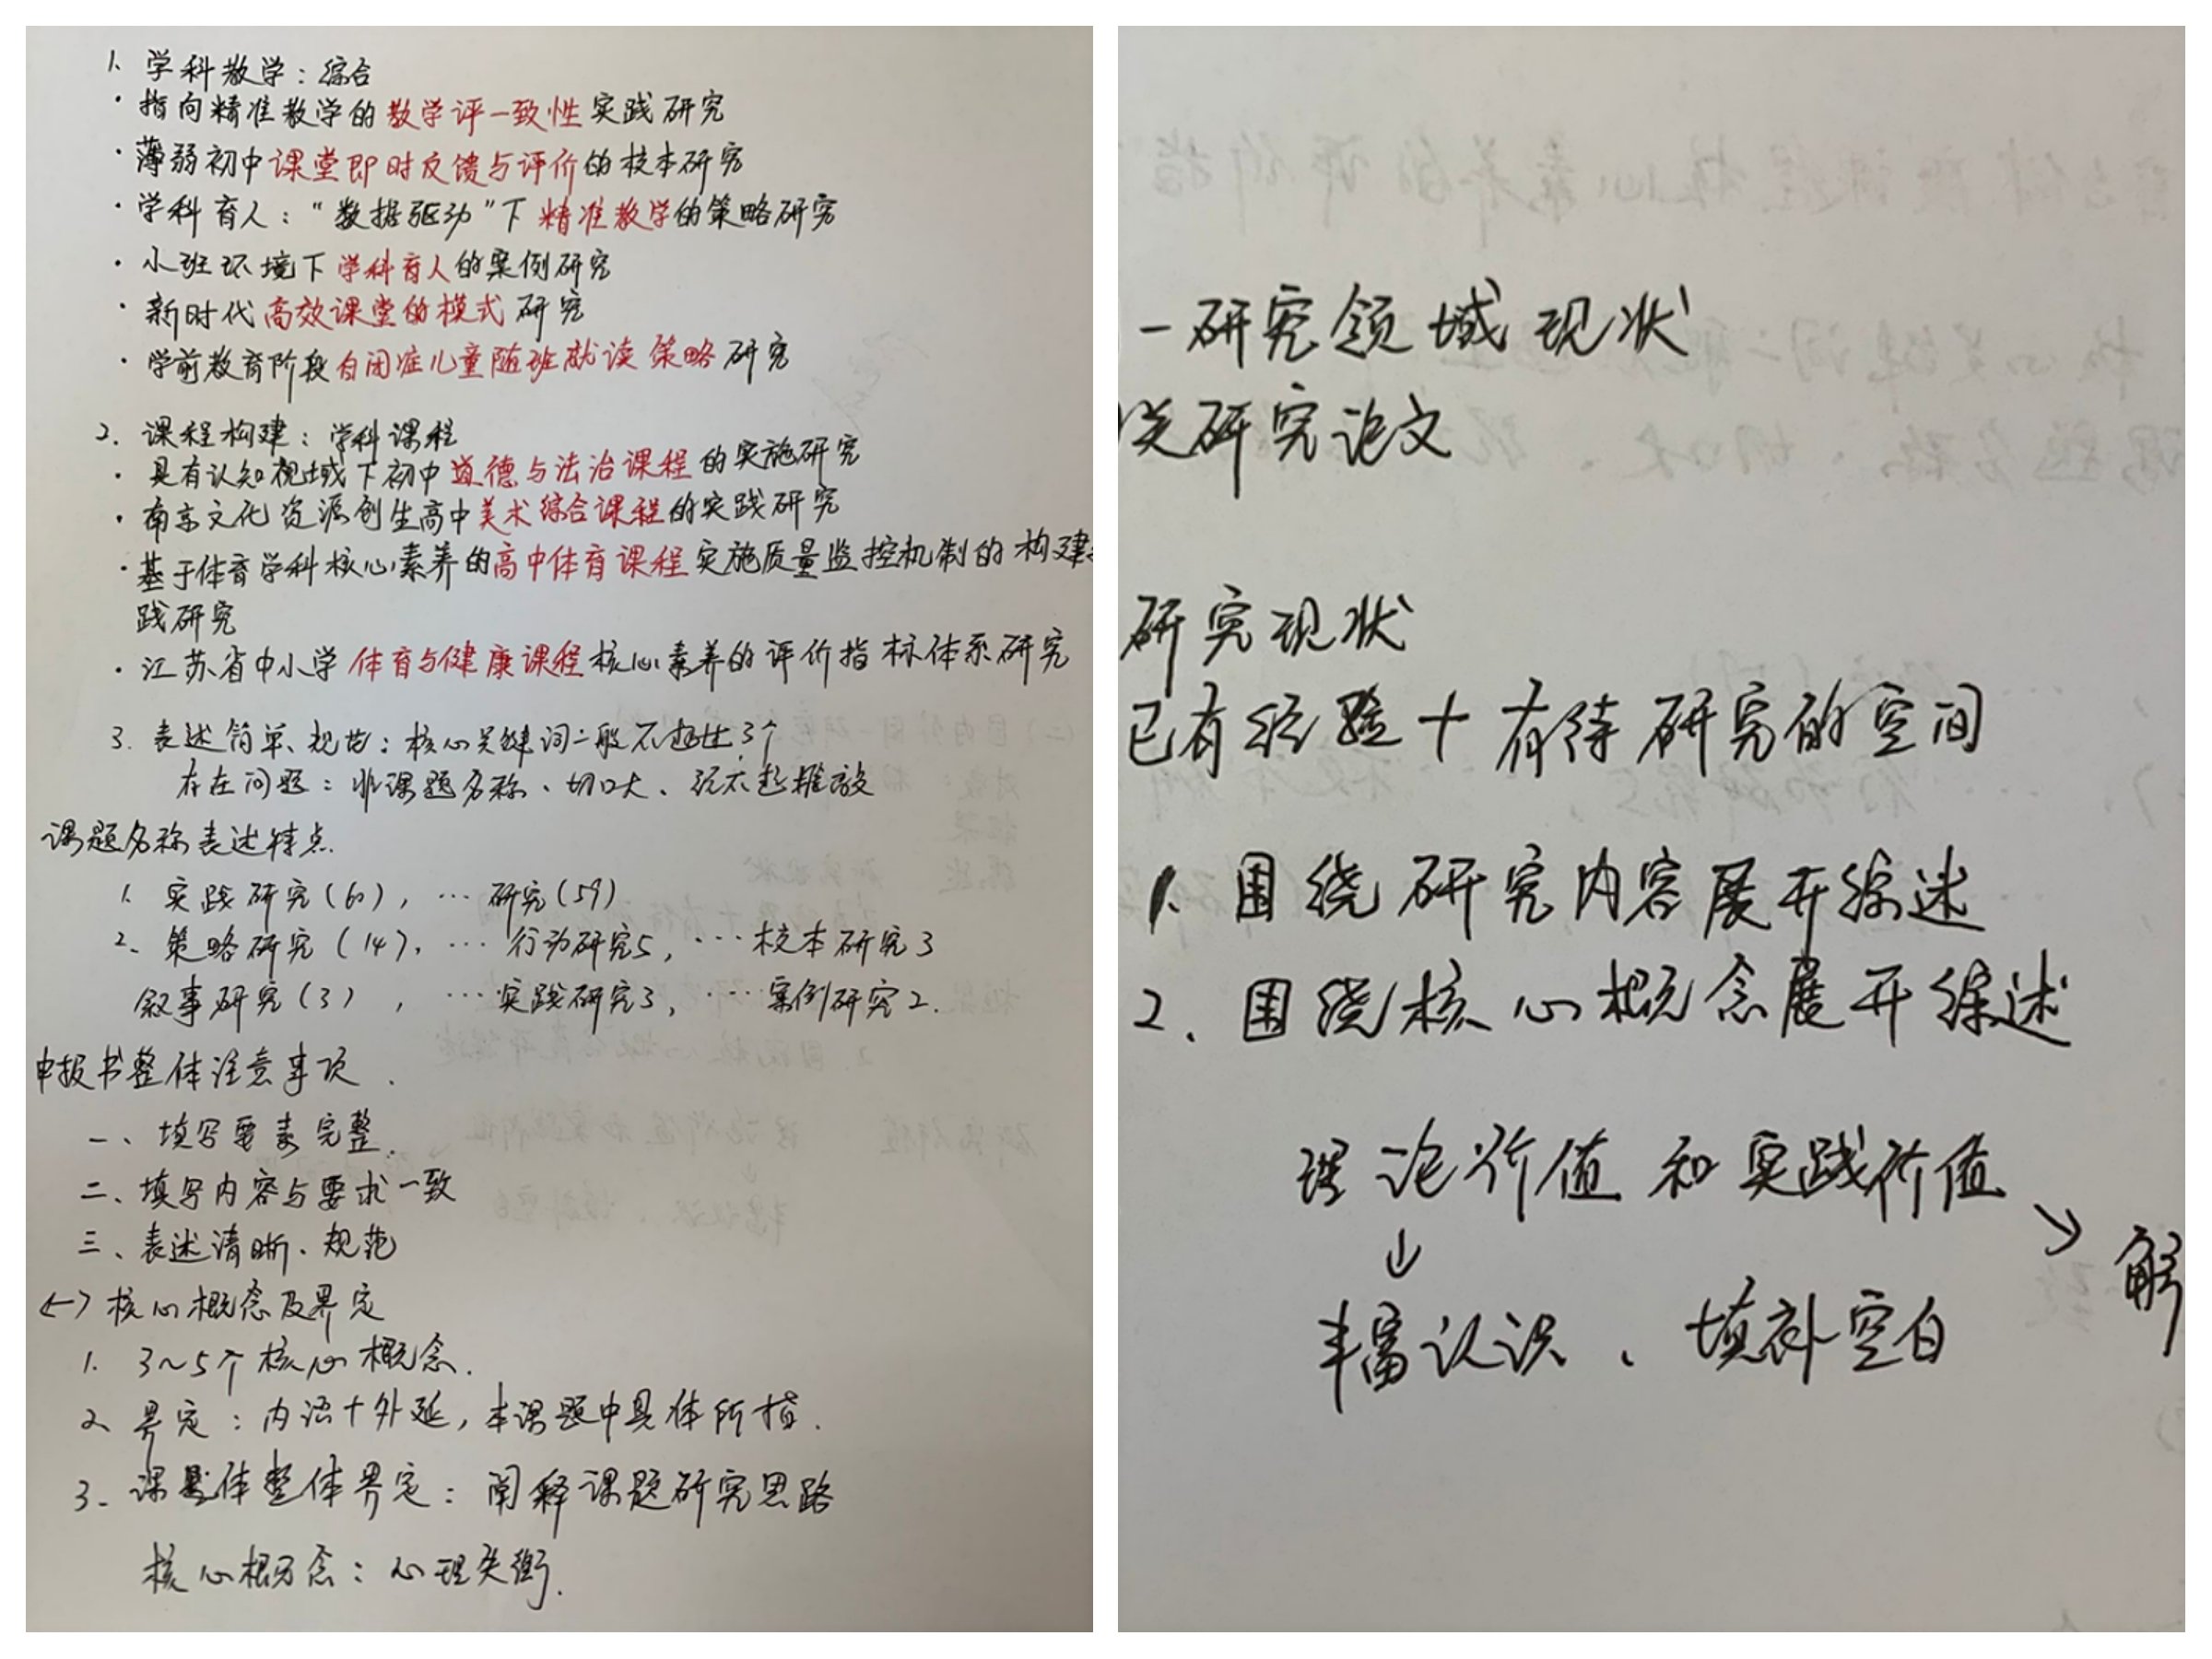 1. 学科教学：综合
· 指向精准教学的教学评一致性实践研究
· 薄弱初中课堂即时反馈与评价的校本研究
· 学科育人：“数据驱动”下精准教学的策略研究
· 小班环境下学科育人的案例研究
· 新时代高效课堂的模式研究
· 学前教育阶段自闭症儿童随班就读策略研究
2. 课程构建：学科课程
· 具有认知视域下初中道德与法治课程的实施研究
· 南京文化资源创生高中美术综合课程的实践研究
· 基于体育学科核心素养的高中体育课程实施质量监控机制的构建
践研究
· 江苏省中小学体育与健康课程核心素养的评价指标体系研究
3. 表述简单、规范：核心关键词一般不超过3个
存在问题：非课题名称、切口大、经不起推敲
课题名称表述特点.
1. 实践研究(60)，… 研究(59)
2、策略研究(14)，… 行动研究5，… 校本研究3
叙事研究(3)，… 实践研究3，… 案例研究2.
申报书整体注意事项.
一、填写要素完整.
二、填写内容与要求一致
三、表述清晰、规范
(一)核心概念及界定
1. 3~5个核心概念.
2. 界定：内涵+外延，本课题中具体所指.
3. 课题体整体界定：阐释课题研究思路
核心概念：心理失衡.
一研究领域现状
关研究论文
研究现状
已有经验+有待研究的空间
1. 围绕研究内容展开综述
2. 围绕核心概念展开综述
理论价值和实践价值
↓ ↘ 解
丰富认识、填补空白